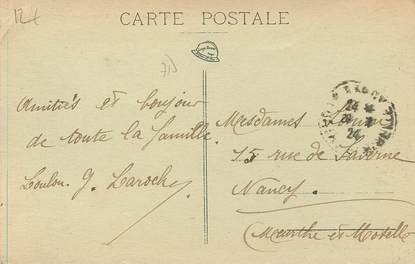 CARTE POSTALE
Amitiés et bonjour
de toute la famille.
Loulou. G. Laroche
Mesdames
15 rue de Saverne
Nancy.
Meurthe et Moselle
24
24